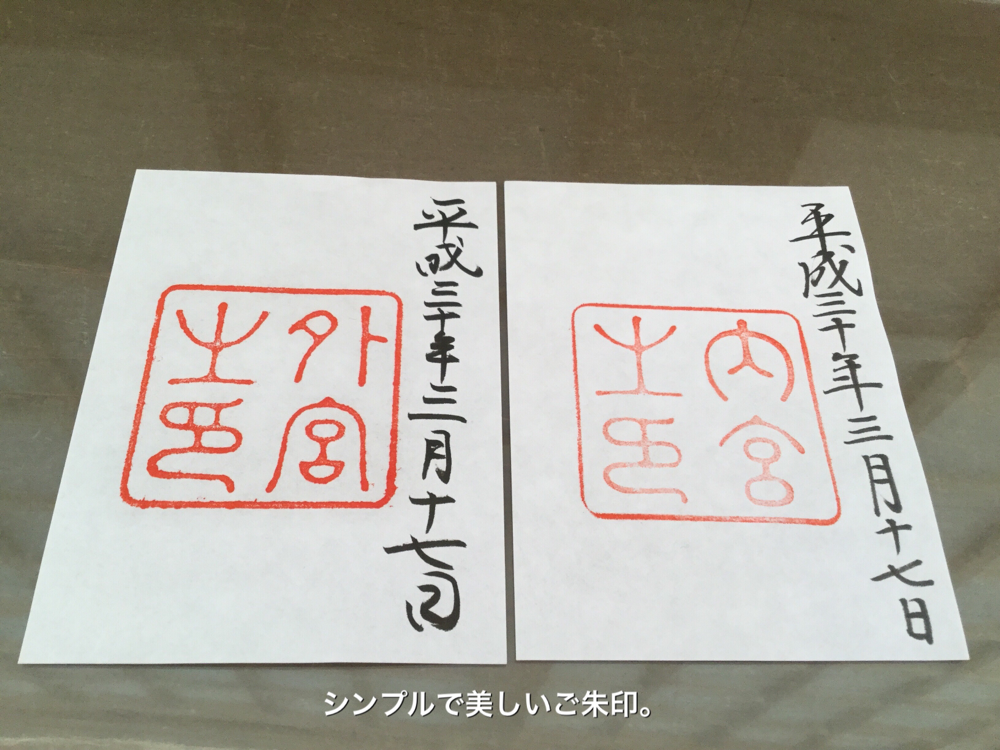 平成三十年三月十七日
外宮
之印
平成三十年三月十七日
内宮
之印
シンプルで美しいご朱印。